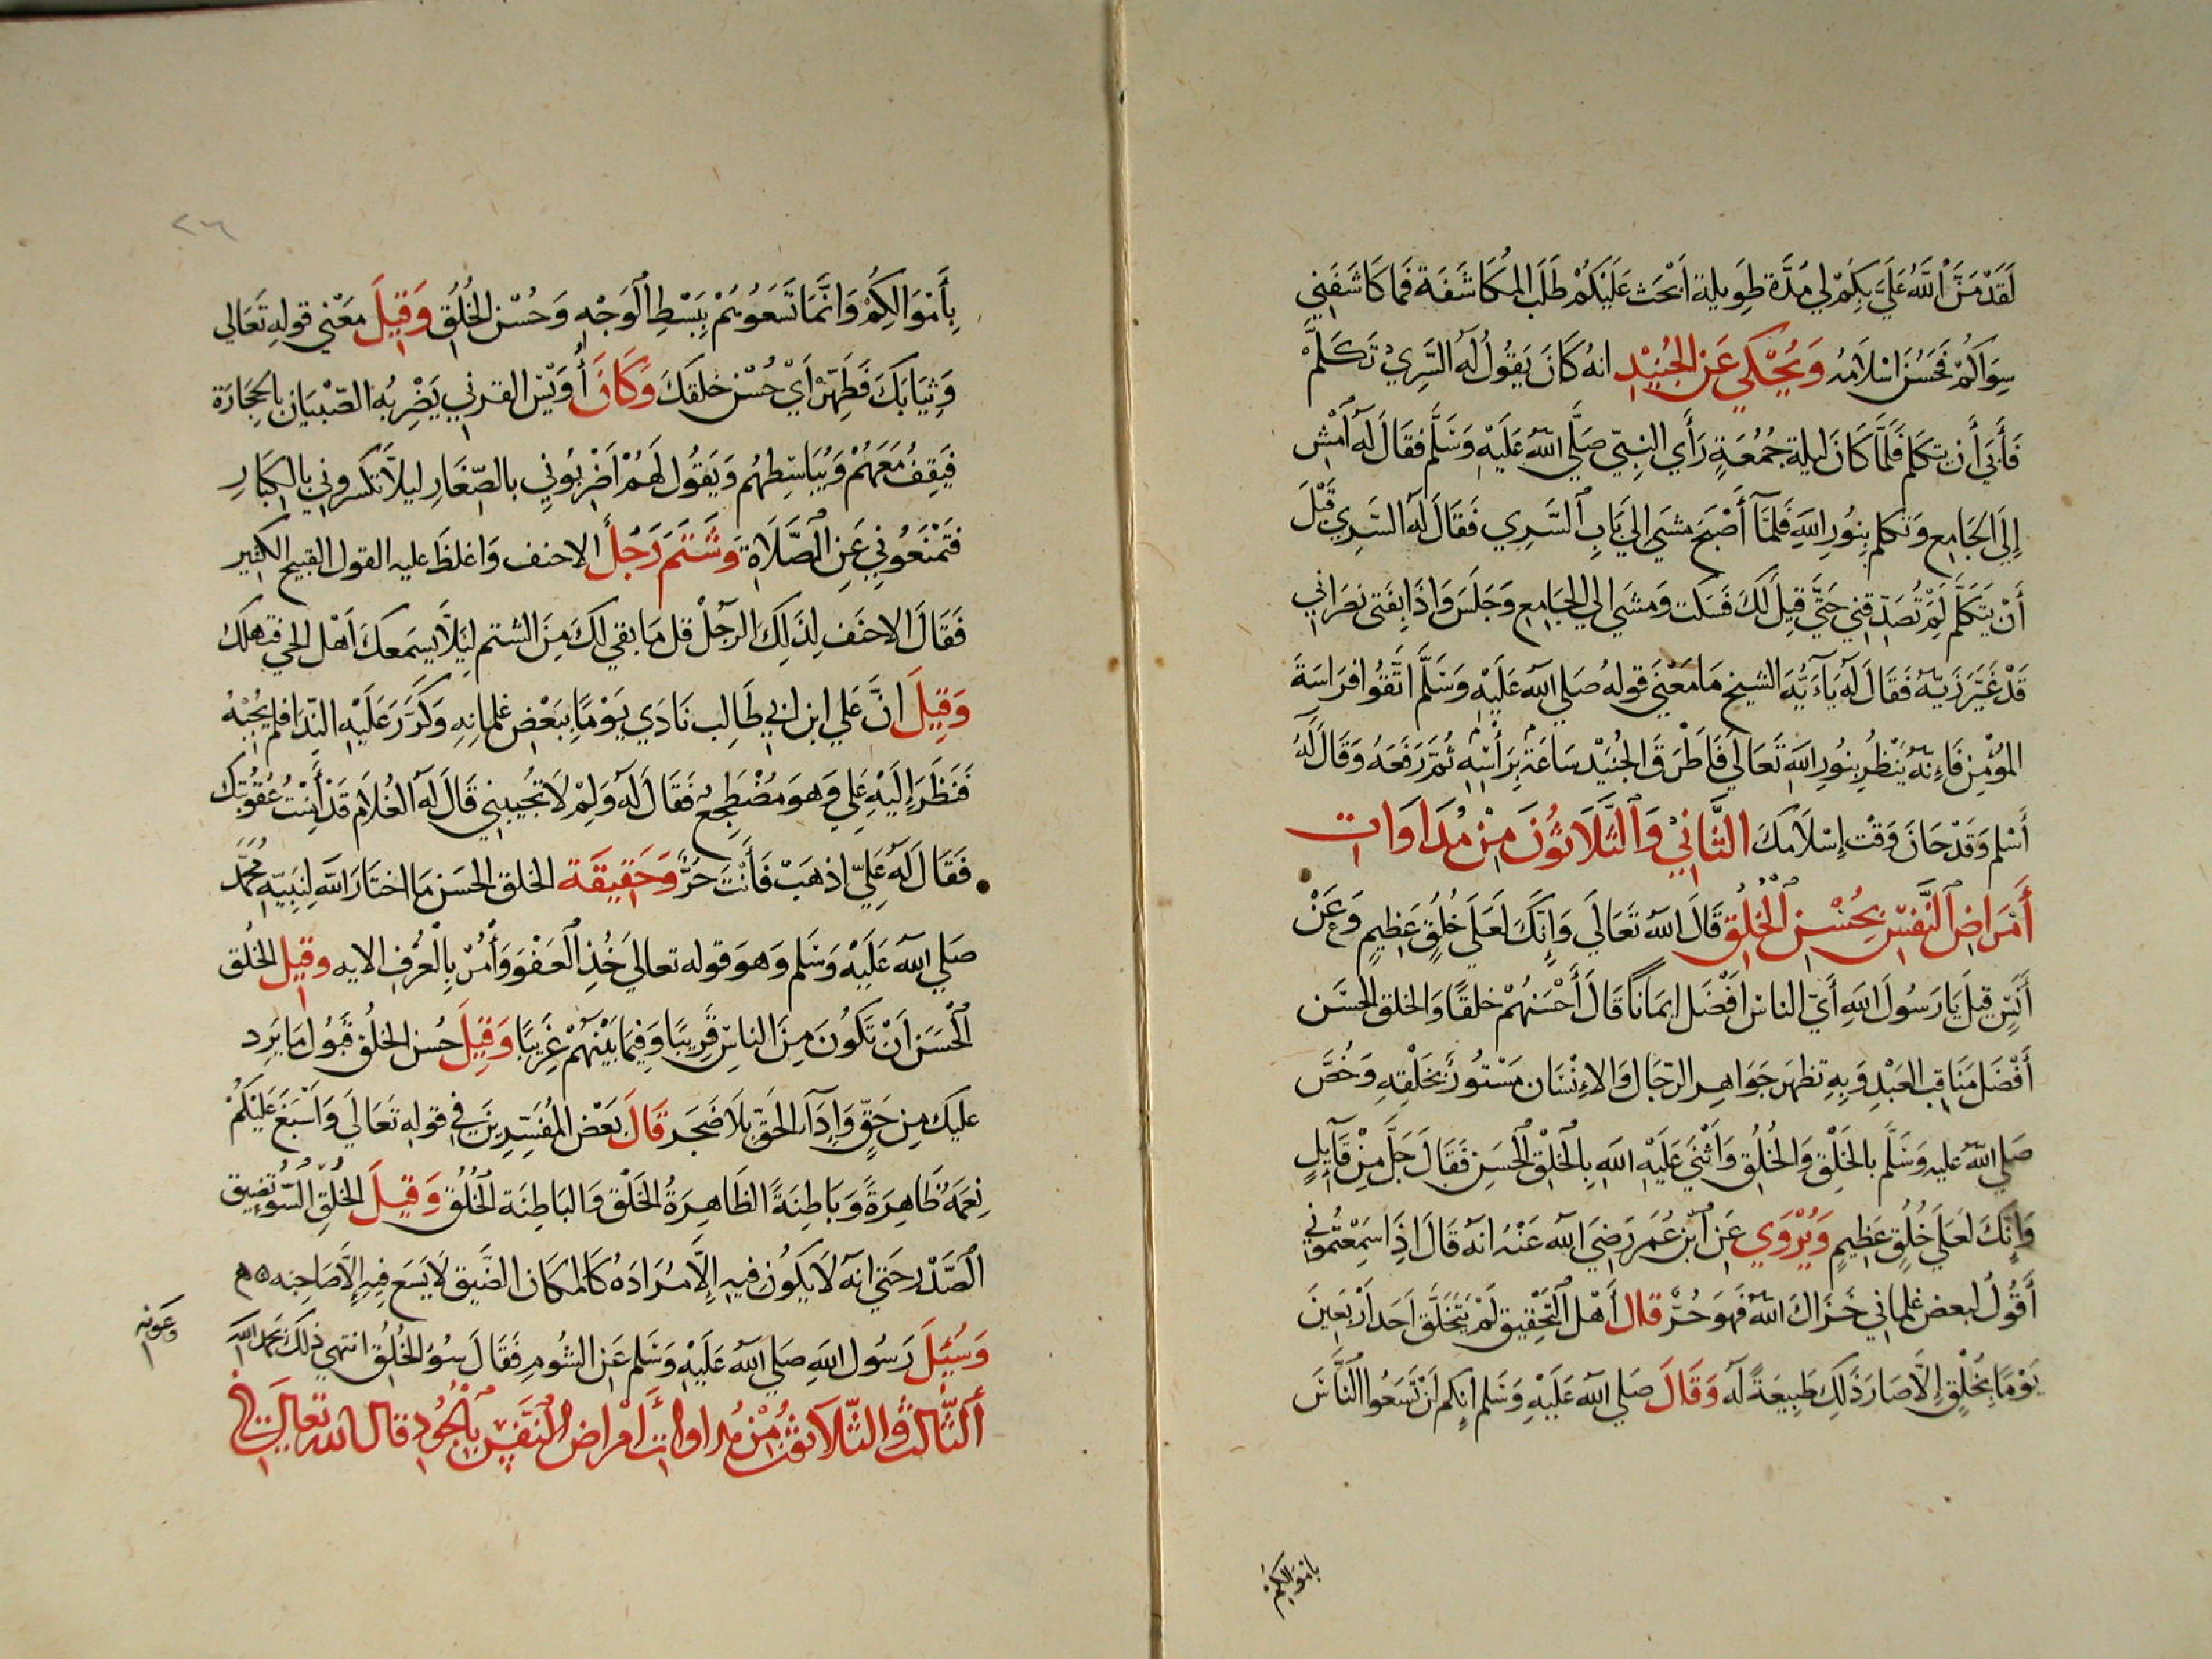 لَقَدْ مَنَّ اَللَّهُ عَلَيَّ بِكُمْ لِي مُدَّة طَوِيلة اَبْحَث عَلَيْكُمْ طَلَب المُكَاشَفَة فَمَا كَاشَفَنِي
سِوَاكُمْ فَحَسُنَ اسْلَامُهُ وَيُحْكَي عَن الجُنَيْدِ انهُ كَانَ يَقُولُ لَهُ السَّرِيْ تَكَلَّمْ
فَأَبَى أَن يتكلم فَلَمَّا كَانَ ليلة جُمُعَةٍ رَأَي النبِيّ صَلَّي اللهُ عَلَيْهِ وَسَلَّم فقَالَ لَهُ اَمْشِ
إِلَى الجَامِع وَتكلم بِنُورِ اللهِ فَلمَّا أَصْبَحَ مشَي الي بَابِ اَلسَّرِي فَقَالَ لَهُ السَّرِي قَبْلَ
أَنْ يَتَكَلَّم لَمْ تُصَدّقنِي حَتَّي قِيلَ لَكَ فَسَكت وَمشَي الي الجَامِع وَجَلَسَ وَاذَا بِفَتى نصَرَاني
قَدْ غَيَّرَ زَيّهُ فَقَالَ لَهُ يَآءَيُّهَ الشيخ مَا مَعْنَي قوله صَلي الله عَلَيْهِ وَسَلَّمَ اتَّقُوا فرَاسَةَ
المُؤْمِن فَاءِنهُ يَنْظُرُ بِنُورِ اللهِ تَعَالَي فَاَطْرَقَ الجُنَيْد سَاعَة بِرَأْسِهِ ثُمَّ رَفَعَهُ وَقَالَ لَهُ
أَسْلم وَقَدْ حَانَ وَقْت إِسْلَامكَ الثَّانِيْ وَاَلثَّلَاثُوْنَ مِنْ مُدَاوَات
أَمْرَاضِ اَلنَّفسِ بِحُسْنِ اَلْخُلُق قَالَ اللهُ تَعَالَي وَإِنَّكَ لَعَلَي خُلُقٍ عَظِيمٍ وَعَنْ
أَنَسٍ قِيلَ يَا رَسُولَ اللهِ أَيّ الناس اَفْضَل ايمَانًا قَالَ أَحْسَنهُمْ خلقًا وَالخلق الحَسَن
أَفْضَل مَنَاقِب العَبْدِ وَبِهِ تظهَر جَوَاهِر الرّجَال وَالاءِنْسَان مَسْتُورٌ بِخَلْقِهِ وَخُصَّ
صَلي اللهُ عَليهِ وَسَلَّم بالخَلْقِ وَالخُلُق وَأَثْنَي عَلَيْهِ اللهِ بِاَلْخلْق اَلْحَسَنِ فَقَالَ جَلَّ مِنْ قَآيِلٍ
وَإِنَّكَ لَعَلَي خُلُقٍ عَظِيمٍ وَيُرْوَي عَنِ اَبْن عُمَر رَضِيَ اَللهُ عَنْهُ انهُ قَالَ اذَا سَمِعْتُمُونِي
أَقُولُ لبعض غلماني خَزَاكَ اللهُ فَهوَ حُرٌّ قال أَهْل اَلتَّحْقِيقِ لَمْ يَتَخَلَّق اَحَد اَرْبَعِينَ
يَوْمًا بِخُلقٍ إِلَّا صَارَ ذَلِكَ طَبِيعَةً لَهُ وَقَالَ صَلي اللهُ عَلَيْهِ وَسَلم انكم لَنْ تَسَعُوا النَّاسَ
بامْوَالكُمْ
بِأَمْوَالِكُمْ وَانَّمَا تَسَعُوهُمْ بِبَسْطِ اَلْوَجْهِ وَحُسْن الخُلُق وَقِيلَ مَعْنى قوله تَعَالى
وَثِيَابَكَ فَطَهِّرْ أَيْ حُسْن خلقَكَ وَكَانَ أُوَيْس القرني يَضْرِبُهُ الصّبْيَان بالحجَارَة
فَيَقِفُ مَعَهُمْ وَيُبَاسِطهُم وَيَقُول لَهُمْ اَضْرِبُونِي بالصّغَارِ ليلاَّ تكسروني بالكِبَارِ
فتَمْنَعُونِي عَنِ اَلصَّلَاة وَشَتَمَ رَجُلٌ الاحنف وَاغلظَ عليه القول القبيح الكثير
فَقَالَ الاحنَف لِذَلِكَ الرجُلْ قل مَا بَقي لكَ مِنَ الشتم ليَلاَّ يَسمعكَ أَهْل الحي فتهلك
وَقِيلَ انَّ عَلي ابن ابي طَالِب نَادَي يَوْمًا بِبَعْض غلمانِهِ وَكَرَّرَ عَلَيْهِ النِّدَا فلم يُجبْهُ
فَنَظَرَ إِلَيْهِ عَلي وَهوَ مُضْطَجِع فَقَالَ لَهُ وَلِمْ لَا تُجيبني قَالَ لَهُ الغُلَام قَدْ أَمِنْتُ عُقُوبَتكَ
فَقَالَ لَهُ عَلِيّ اذهَبْ فَأَنْتَ حُرٌّ وَحَقِيقَة الخلق الحَسَن مَا اختَارَ اللهُ لِنَبِيّهِ مُحَمَّد
صَلي الله عَلَيْهِ وَسَلم وَهوَ قوله تعالي خُذِ اَلْعَفْوَ وَأْمُرْ بِاَلْعُرْفِ الايه وقيل الخُلق
اَلْحَسَن اَنْ تَكُونَ مِنَ الناس قَرِيبًا وَفِيمَا بَيْنهُمْ غَرِيبًا وَقِيلَ حُسن الخلُق قَبُول مَا يَرِد
عليك مِن حَقٍّ وَاِدَآء الحَقِّ بلَا ضَجَر قَالَ بَعْض المُفَسّرِينَ في قوله تَعَالَي وَأَسْبَغَ عَلَيْكُمْ
نِعَمَهُ ظَاهِرَةً وَبَاطِنَةً الظَاهِرَةُ الخَلْق وَالبَاطِنَة اَلْخُلُق وَقِيلَ الخُلُق السُّوء تَضِيق
اَلصَّدْر حَتي انهُ لَا يَكُون فيهِ إِلَّا مُرَادَهُ كَالمكَان الضَّيق لَا يَسَع فِيهِ إِلَّا صَاحِبه
وَسُيِلَ رَسُول اللهِ صَلي اللهُ عَلَيْهِ وَسَلم عَن الشُوم فَقَالَ سُوُ الخُلُق انتهي ذلكَ بحمد الله
وعونه
اَلثَّالثُ وَالثَّلَاثُونَ مِنْ مُداواتِ أمراض النَّفْسِ بِاَلْجُودِ قال الله تعالى في
٢٦